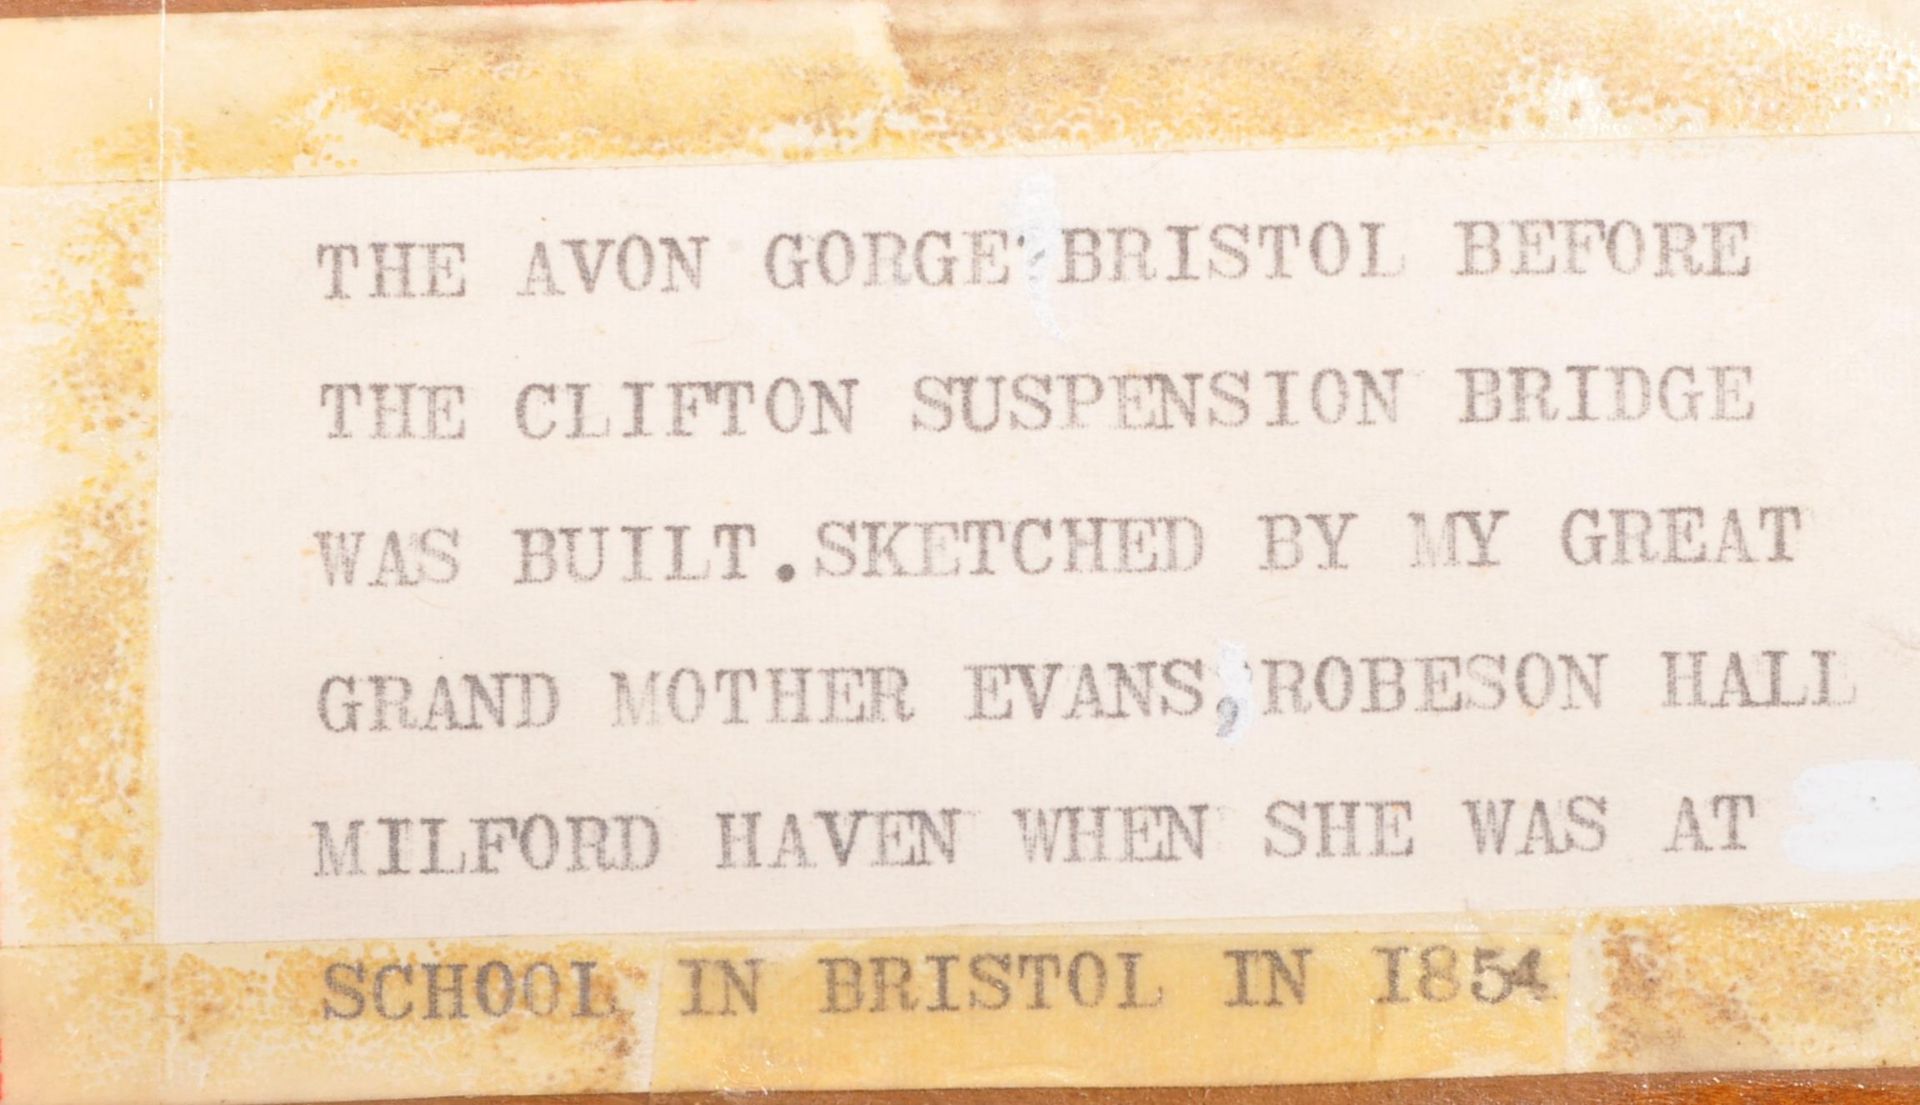 THE AVON GORGE BRISTOL BEFORE
THE CLIFTON SUSPENSION BRIDGE
WAS BUILT.SKETCHED BY MY GREAT
GRAND MOTHER EVANS,ROBESON HALL
MILFORD HAVEN WHEN SHE WAS AT
SCHOOL IN BRISTOL IN I854